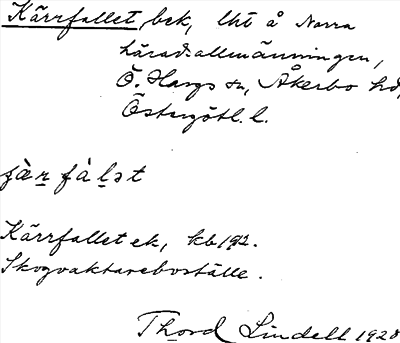 Kärrfallet, bek, lht å Norra
häradsallmänningen,
Ö. Hargs sn, Åkerbo hd,
Östergötl. l.
fàlət
Kärrfallet ek, kb 192.
Skogvaktareboställe.
Thord Lindell 1928